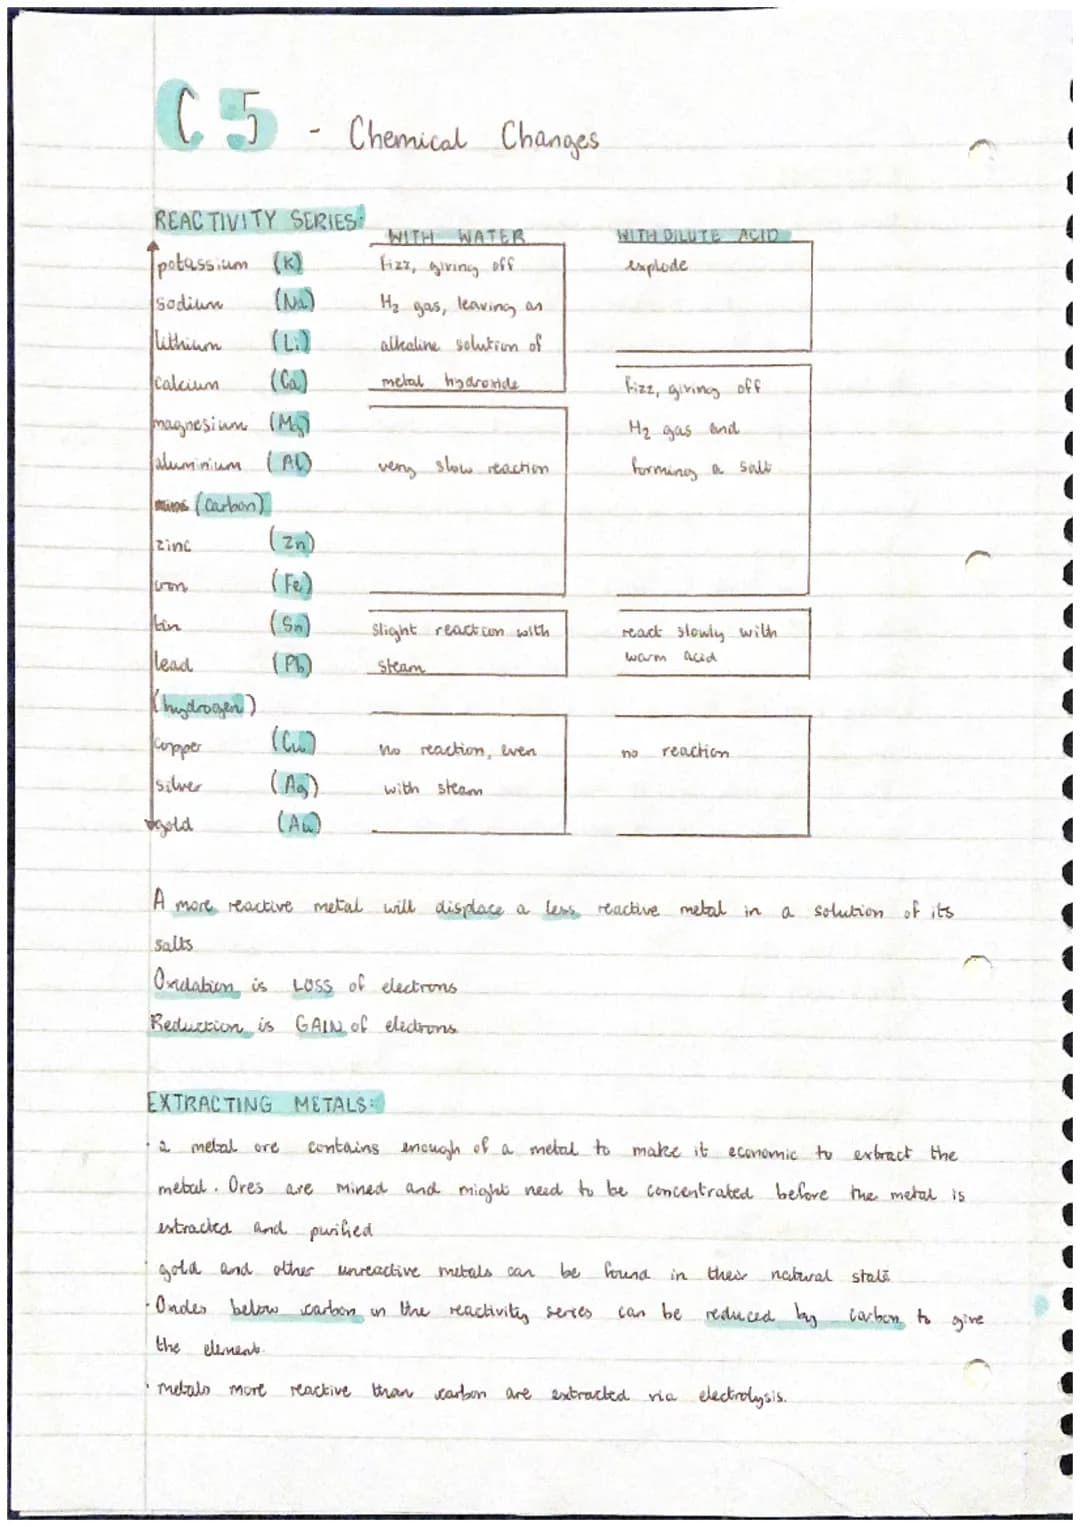 C5 - Chemical Changes
REACTIVITY SERIES:
WITH WATER WITH DILUTE ACID
potassium (K) fizz, giving off explode
sodium (Na) H2 gas, leaving an
lithium (Li) alkaline solution of
calcium (Ca) metal hydroxide fizz, giving off
magnesium (Mg) H2 gas and
aluminium (Al) very slow reaction forming a salt
(carbon)
zinc (Zn)
iron (Fe)
tin (Sn) slight reaction with react slowly with
lead (Pb) steam warm acid
(hydrogen)
copper (Cu) no reaction, even no reaction
silver (Ag) with steam
gold (Au)
A more reactive metal will displace a less reactive metal in a solution of its
salts
Oxidation is LOSS of electrons
Reduction is GAIN of electrons
EXTRACTING METALS:
· a metal ore contains enough of a metal to make it economic to extract the
metal. Ores are mined and might need to be concentrated before the metal is
extracted and purified
· gold and other unreactive metals can be found in their natural state
· Oxides below carbon in the reactivity series can be reduced by carbon to give
the element.
· metals more reactive than carbon are extracted via electrolysis.